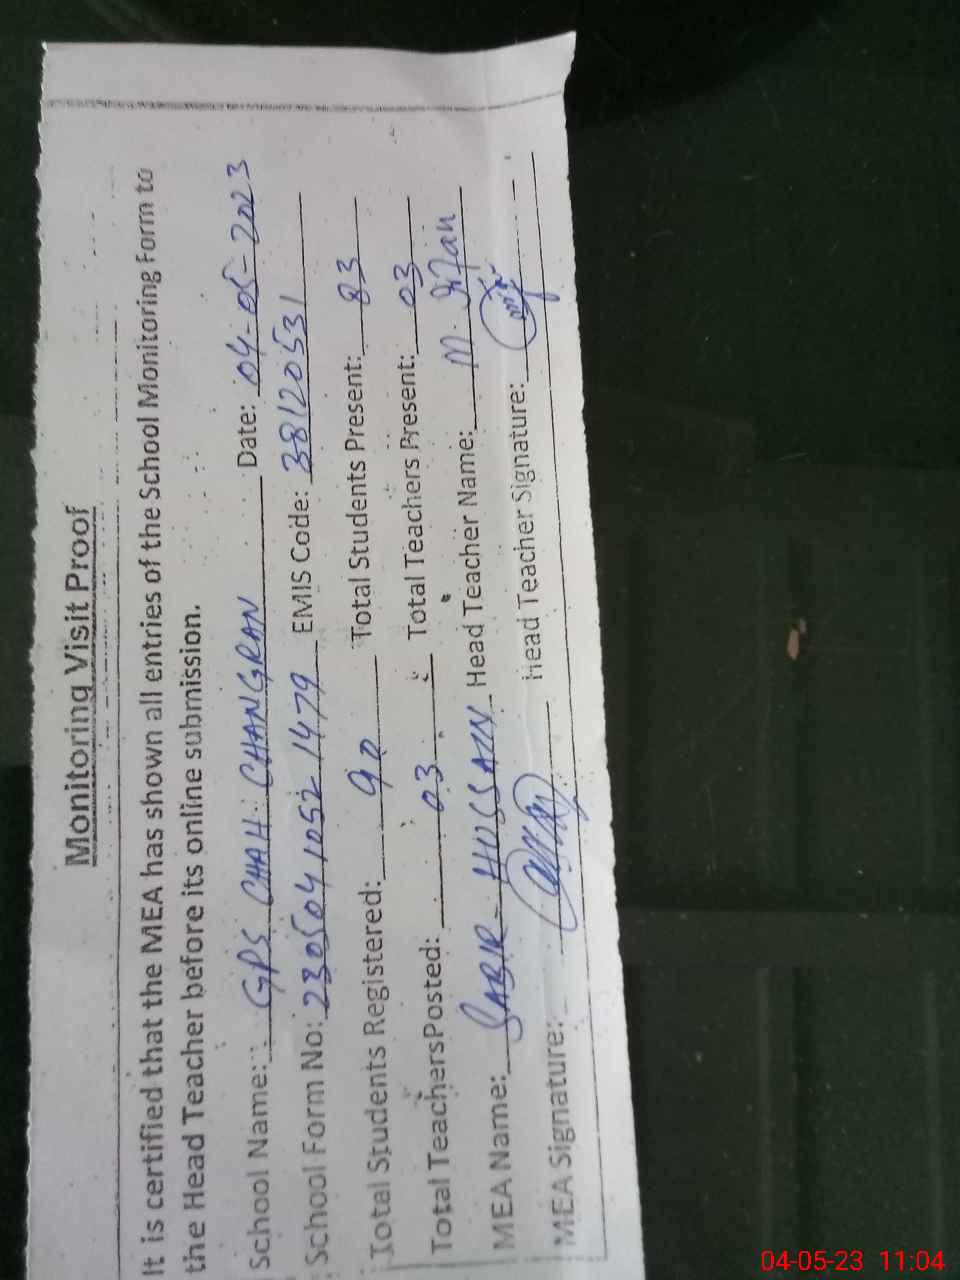 Monitoring Visit Proof
It is certified that the MEA has shown all entries of the School Monitoring Form to
the Head Teacher before its online submission.
School Name: GPS CHAH CHANGRAN Date: 04-05-2023
School Form No: 230504 1052 1479 EMIS Code: 38120531
Total Students Registered: 90 Total Students Present: 83
Total Teachers Posted: 03 Total Teachers Present: 03
MEA Name: SABIR HUSSAIN Head Teacher Name: M. Irfan
MEA Signature: Head Teacher Signature:
04-05-23 11:04